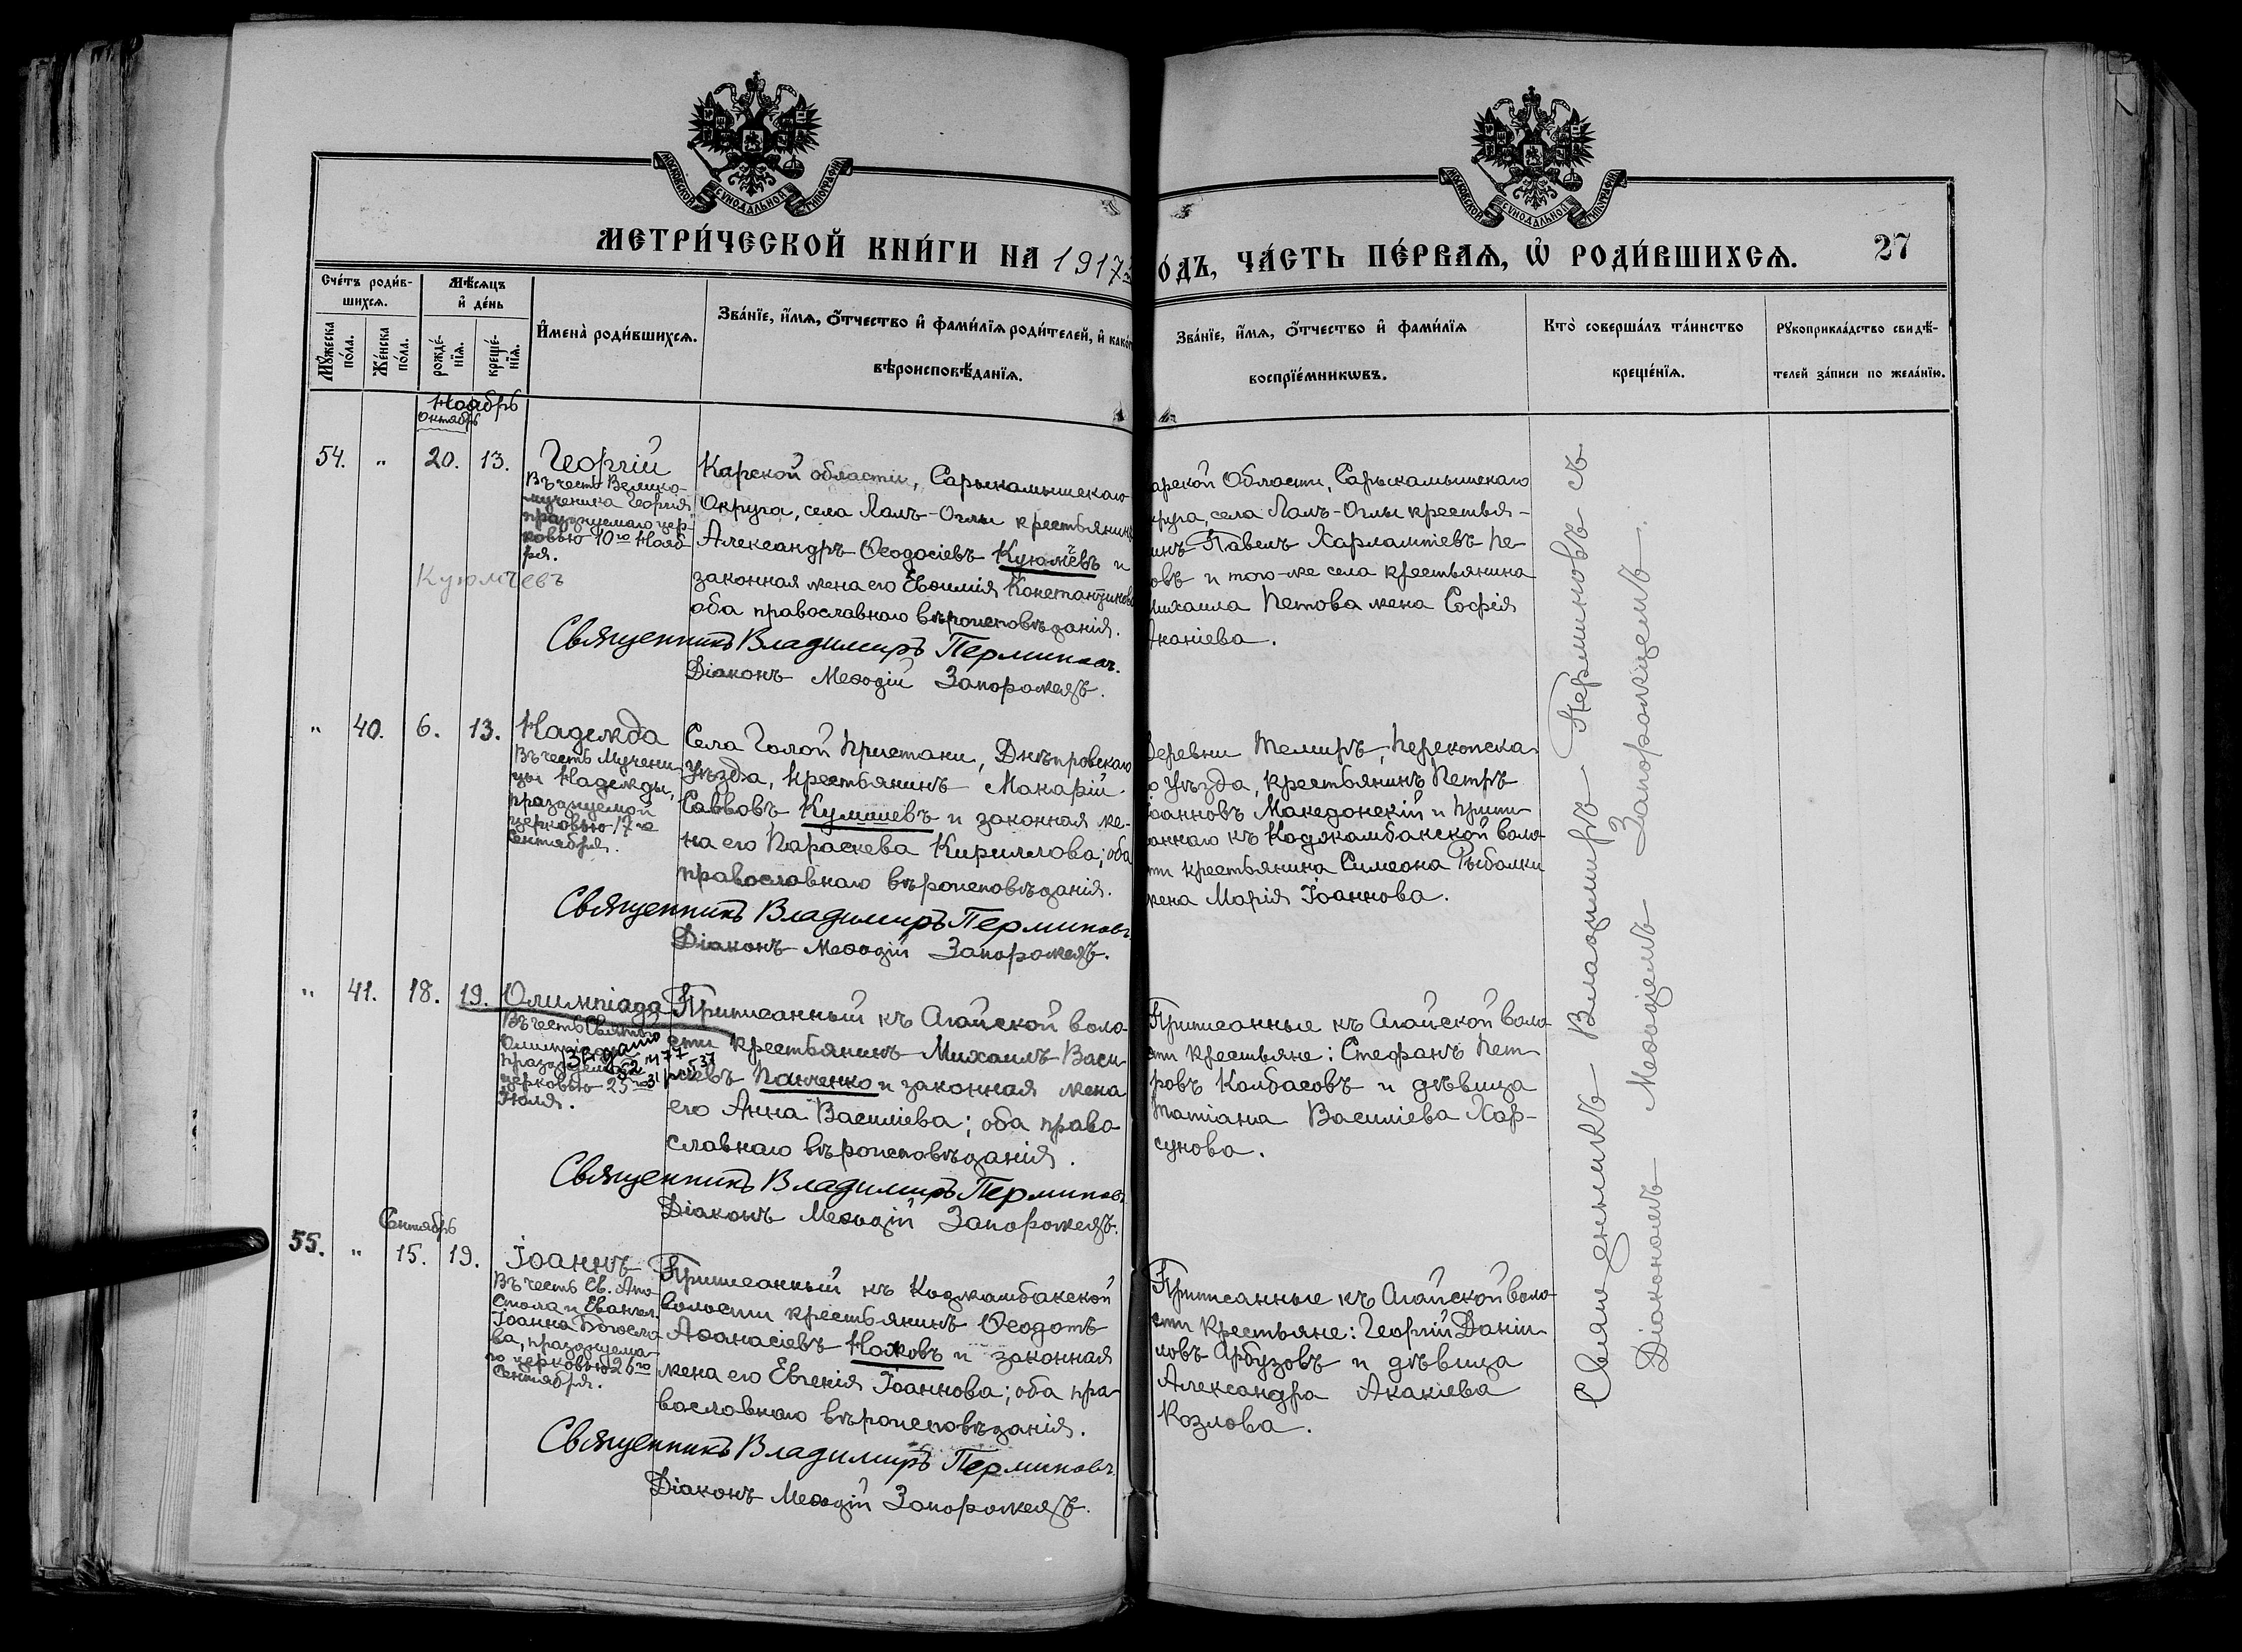 МОСКОВСКОЙ СУНОДАЛЬНОЙ ТИПОГРАФІИ
МОСКОВСКОЙ СУНОДАЛЬНОЙ ТИПОГРАФІИ
МЕТРИ́ЧЕСКОЙ КНИ́ГИ НА 1917
О́ДЪ, ЧА́СТЬ ПЕ́РВАѦ, Ѡ҆ РОДИ́ВШИХСѦ.
27
Сче́тъ роди́в-
шихсѧ.
Мѹ́жеска по́ла.
Же́нска по́ла.
Мѣ́сѧцъ
и҆ де́нь
рожде́-
нїѧ.
креще́-
нїѧ.
И҆мена̀ роди́вшихсѧ.
Зва́нїе, и҆́мѧ, ѻ҆́тчество и҆ фами́лїѧ роди́телей, и҆ како́г
вѣроисповѣ́данїѧ.
Зва́нїе, и҆́мѧ, ѻ҆́тчество и҆ фами́лїѧ
воспрїе́мникωвъ.
Кто̀ соверша́лъ та́инство
креще́нїѧ.
Рꙋкоприкла́дство свидѣ́-
телей за́писи по жела́нїю.
Ноябрь
Октябрь
54. " 20. 13. Георгій
Въ честь Велико-
мученика Георгія
празднуемаго цер-
ковью 10го Нояб-
ря.
Куюмчевъ
Карской области, Сарыкамышскаго
Округа, села Лалъ-Оглы крестьянинъ
Александръ Ѳеодосіевъ Куюмчевъ и
законная жена его Евѳимія Константинова
оба православнаго вѣроисповѣданія.
Священникъ Владимиръ Перминовъ.
Діаконъ Меѳодій Запорожецъ.
арской Области, Сарыкамышскаго
круга, села Лалъ-Оглы крестья-
инъ Павелъ Харлампіевъ Пе-
овъ и того-же села крестьянина
Михаила Петова жена Софія
Ананіева.
" 40. 6. 13. Надежда
Въ честь Мучени-
цы Надежды,
празднуемой
церковью 17го
Сентября.
Села Голой Пристани, Днѣпровскаго
Уѣзда, крестьянинъ Макарій
Саввовъ Кулишевъ и законная же-
на его Параскева Кириллова; оба
православнаго вѣроисповѣданія.
Священникъ Владимиръ Перминовъ
Діаконъ Меѳодій Запорожецъ.
Деревни Темиръ, Перекопска-
о Уѣзда, крестьянинъ Петръ
Іоанновъ Македонскій и припи-
саннаго къ Коджамбакской воло-
сти крестьянина Симеона Рыбалки
жена Марія Іоаннова.
" 41. 18. 19. Олимпіада
Въ честь Святой
Олимпіады
церковью 25го
Іюля.
Приписанный къ Агайской воло-
сти крестьянинъ Михаилъ Васи-
ліевъ Панченко и законная жена
его Анна Василіева; оба право-
славнаго вѣроисповѣданія.
Священникъ Владимиръ Перминовъ
Діаконъ Меѳодій Запорожецъ.
Приписанные къ Агайской воло-
сти крестьяне: Стефанъ Пет-
ровъ Колбасовъ и дѣвица
Татіана Василіева Хар-
сунова.
Сентябрь
55. " 15. 19. Іоаннъ
Въ честь Св. Апо-
стола и Евангел.
Іоанна Богосло-
ва, празднуема-
го церковью 26го
Сентября.
Приписанный къ Коджамбакской
волости крестьянинъ Ѳеодотъ
Аѳанасіевъ Носковъ и законная
жена его Евгенія Іоаннова; оба пра-
вославнаго вѣроисповѣданія.
Священникъ Владимиръ Перминовъ
Діаконъ Меѳодій Запорожецъ.
Приписанные къ Агайской воло-
сти крестьяне: Георгій Даніи-
ловъ Арбузовъ и дѣвица
Александра Акакіева
Козлова.
Священникъ Владимиръ Перминовъ съ
Діакономъ Меѳодіемъ Запорожцемъ.